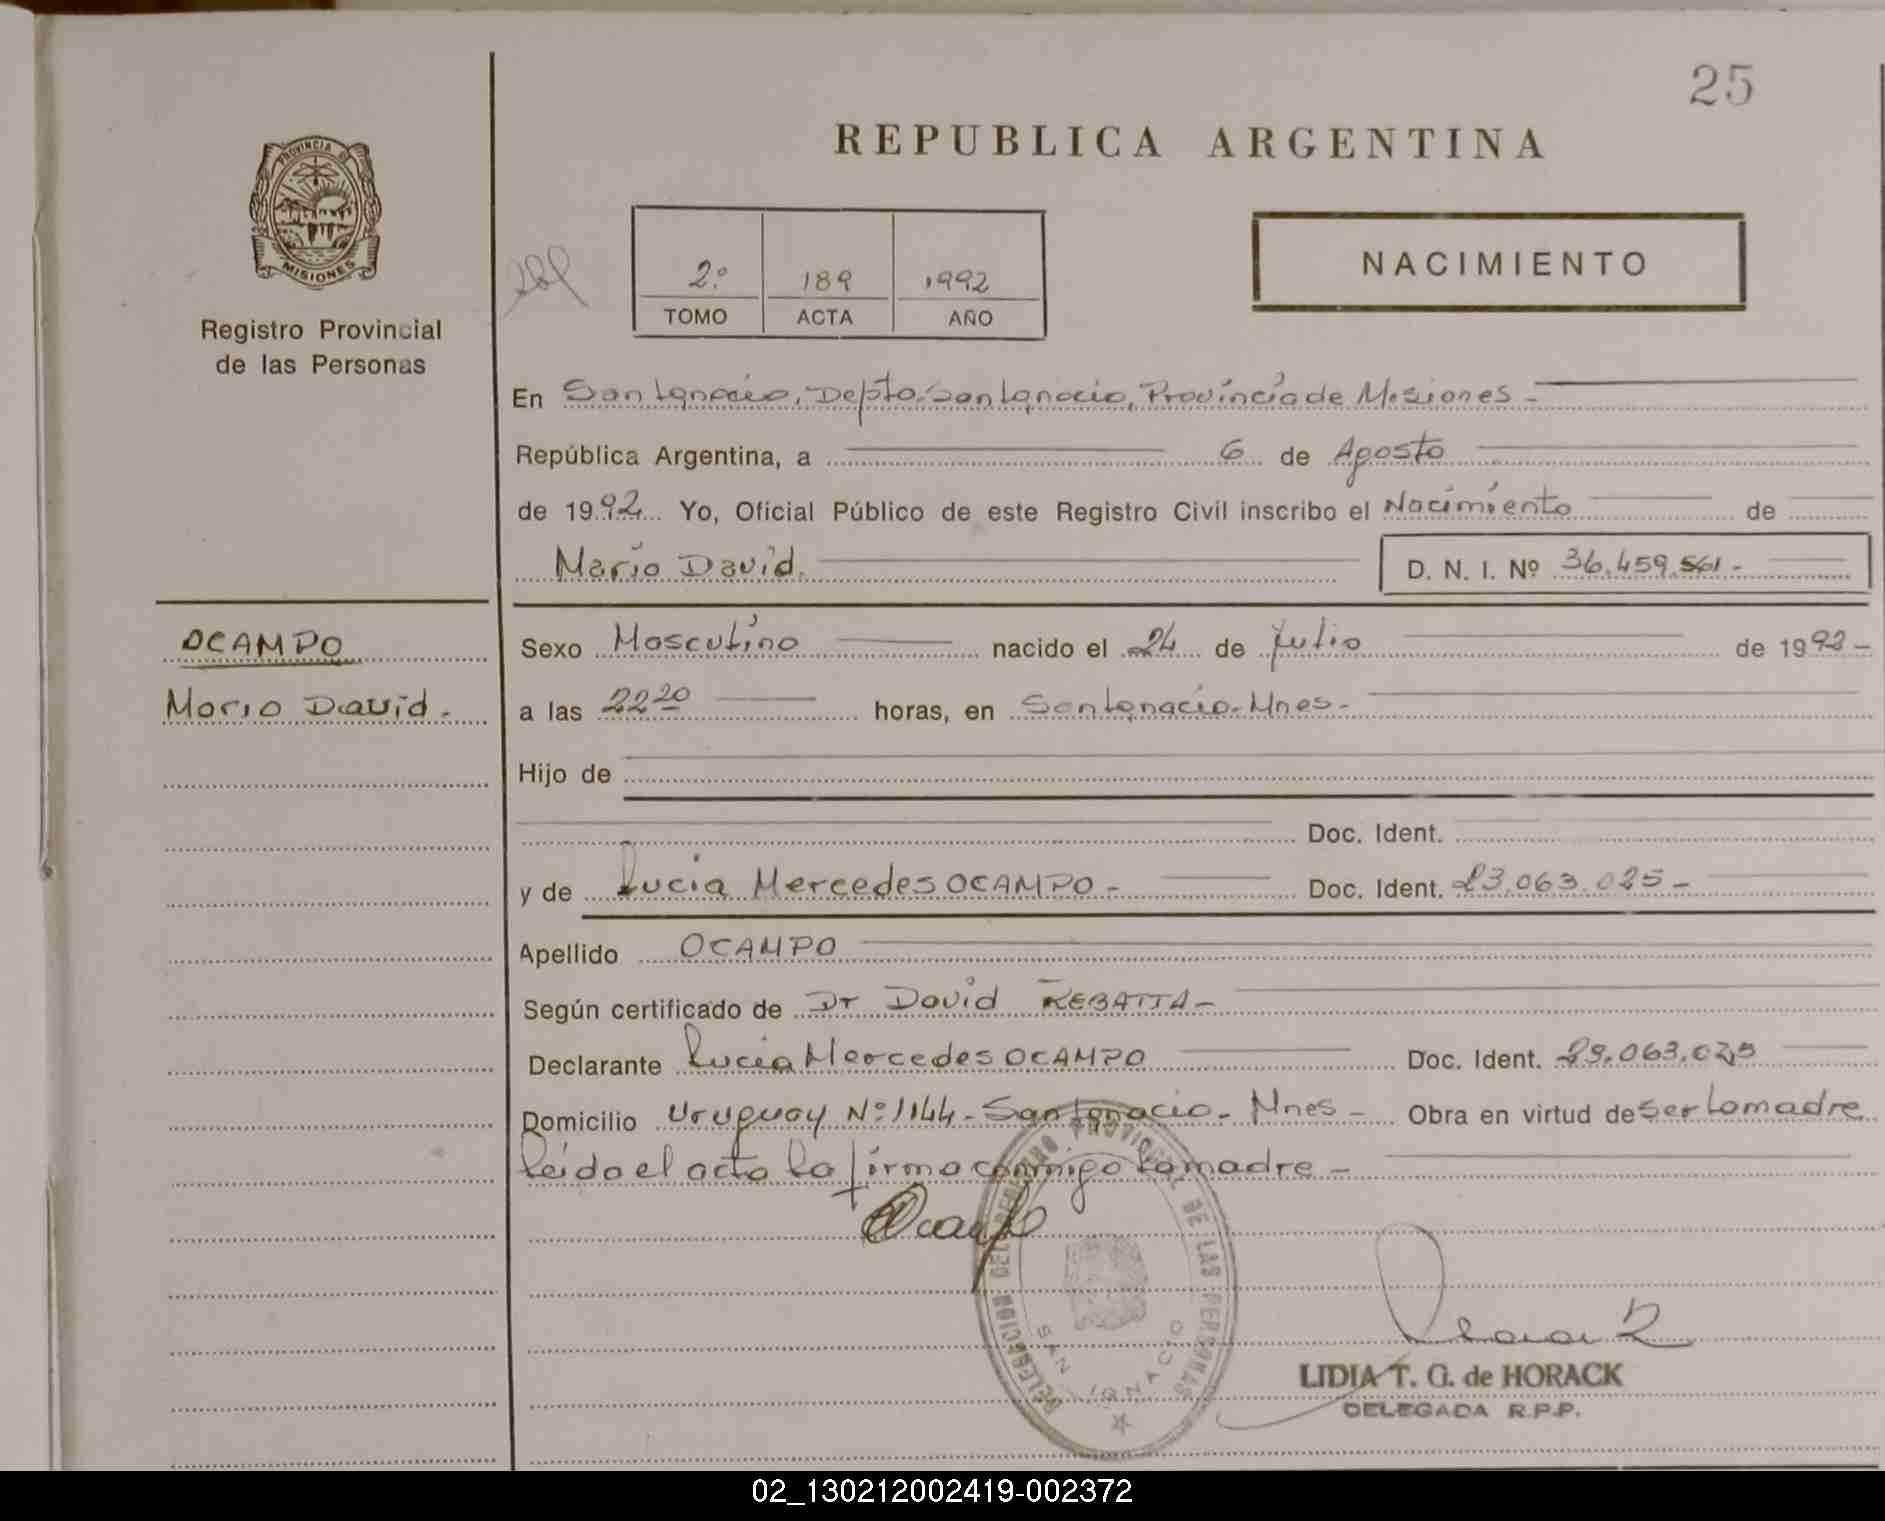 25
REPUBLICA ARGENTINA
PROVINCIA DE
MISIONES
Registro Provincial
de las Personas
2º 189 1992
TOMO ACTA AÑO
NACIMIENTO
En San Ignacio, Depto. San Ignacio, Provincia de Misiones -
República Argentina, a 6 de Agosto
de 1992 Yo, Oficial Público de este Registro Civil inscribo el Nacimiento de
Mario David. D. N. I. Nº 36.459.561.-
OCAMPO
Mario David.
Sexo Masculino nacido el 24 de Julio de 1992 -
a las 22 20 horas, en San Ignacio - Mnes -
Hijo de
Doc. Ident.
y de Lucia Mercedes OCAMPO - Doc. Ident. 23.063.025 -
Apellido OCAMPO
Según certificado de Dr David REBATTA -
Declarante Lucia Mercedes OCAMPO Doc. Ident. 23.063.025
Domicilio Uruguay Nº 1144 - San Ignacio - Mnes - Obra en virtud de ser la madre
leido el acta la firma conmigo la madre -
Ocampo
DELEGACION DEL REGISTRO PROVINCIAL DE LAS PERSONAS
SAN IGNACIO
LIDIA T. G. de HORACK
DELEGADA R.P.P.
02_130212002419-002372